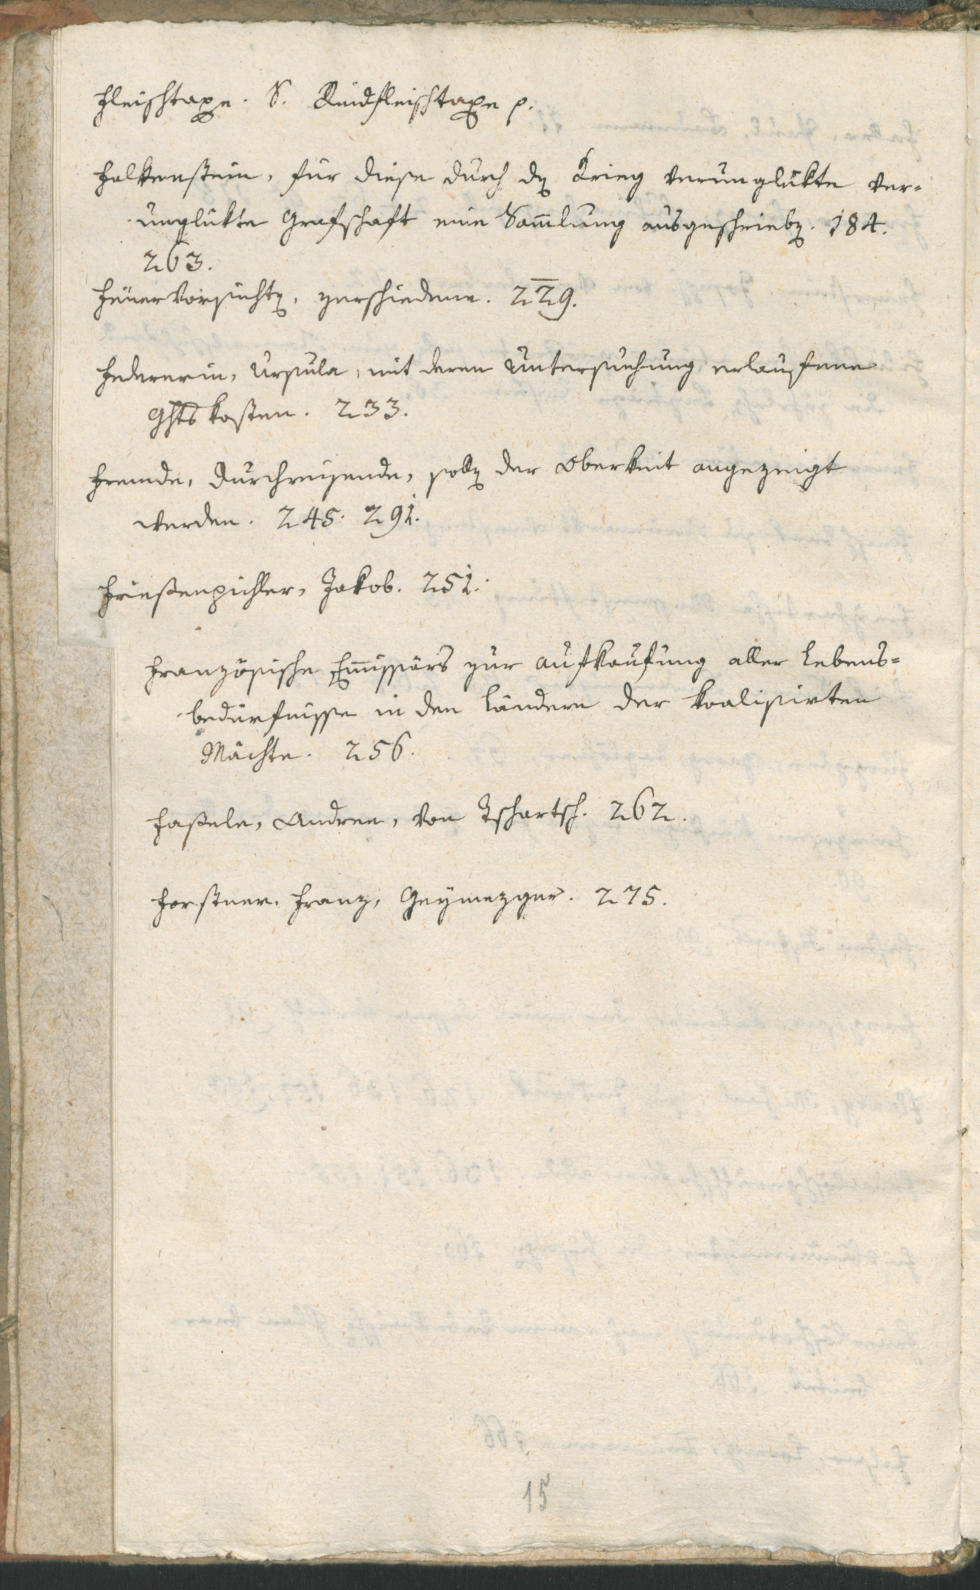 Fleischtaxe. S. Rindfleischtaxe p.
Falkenstein, für diese durch dȳ Krieg verunglükte ver-
unglükte Grafschaft eine Sam̄lung ausgeschriebȳ. 184.
263.
Feuervorsichtȳ, zerschiedene. 229.
Federerin, Ursula, mit deren Untersuchung erlaufene
Ghtskosten. 233.
Fremde, durchreisende, sollȳ der Oberkeit angezeigt
werden. 245. 291.
Frießenpichler, Jakob. 251.
Französische Em̄issärs zur Aufkaufung aller Lebens-
bedürfnisse in den Ländern der koalisirten
Mächte. 256.
Faßele, Andree, von Tschartsch. 262.
Forstner, Franz, Geymezger. 275.
15